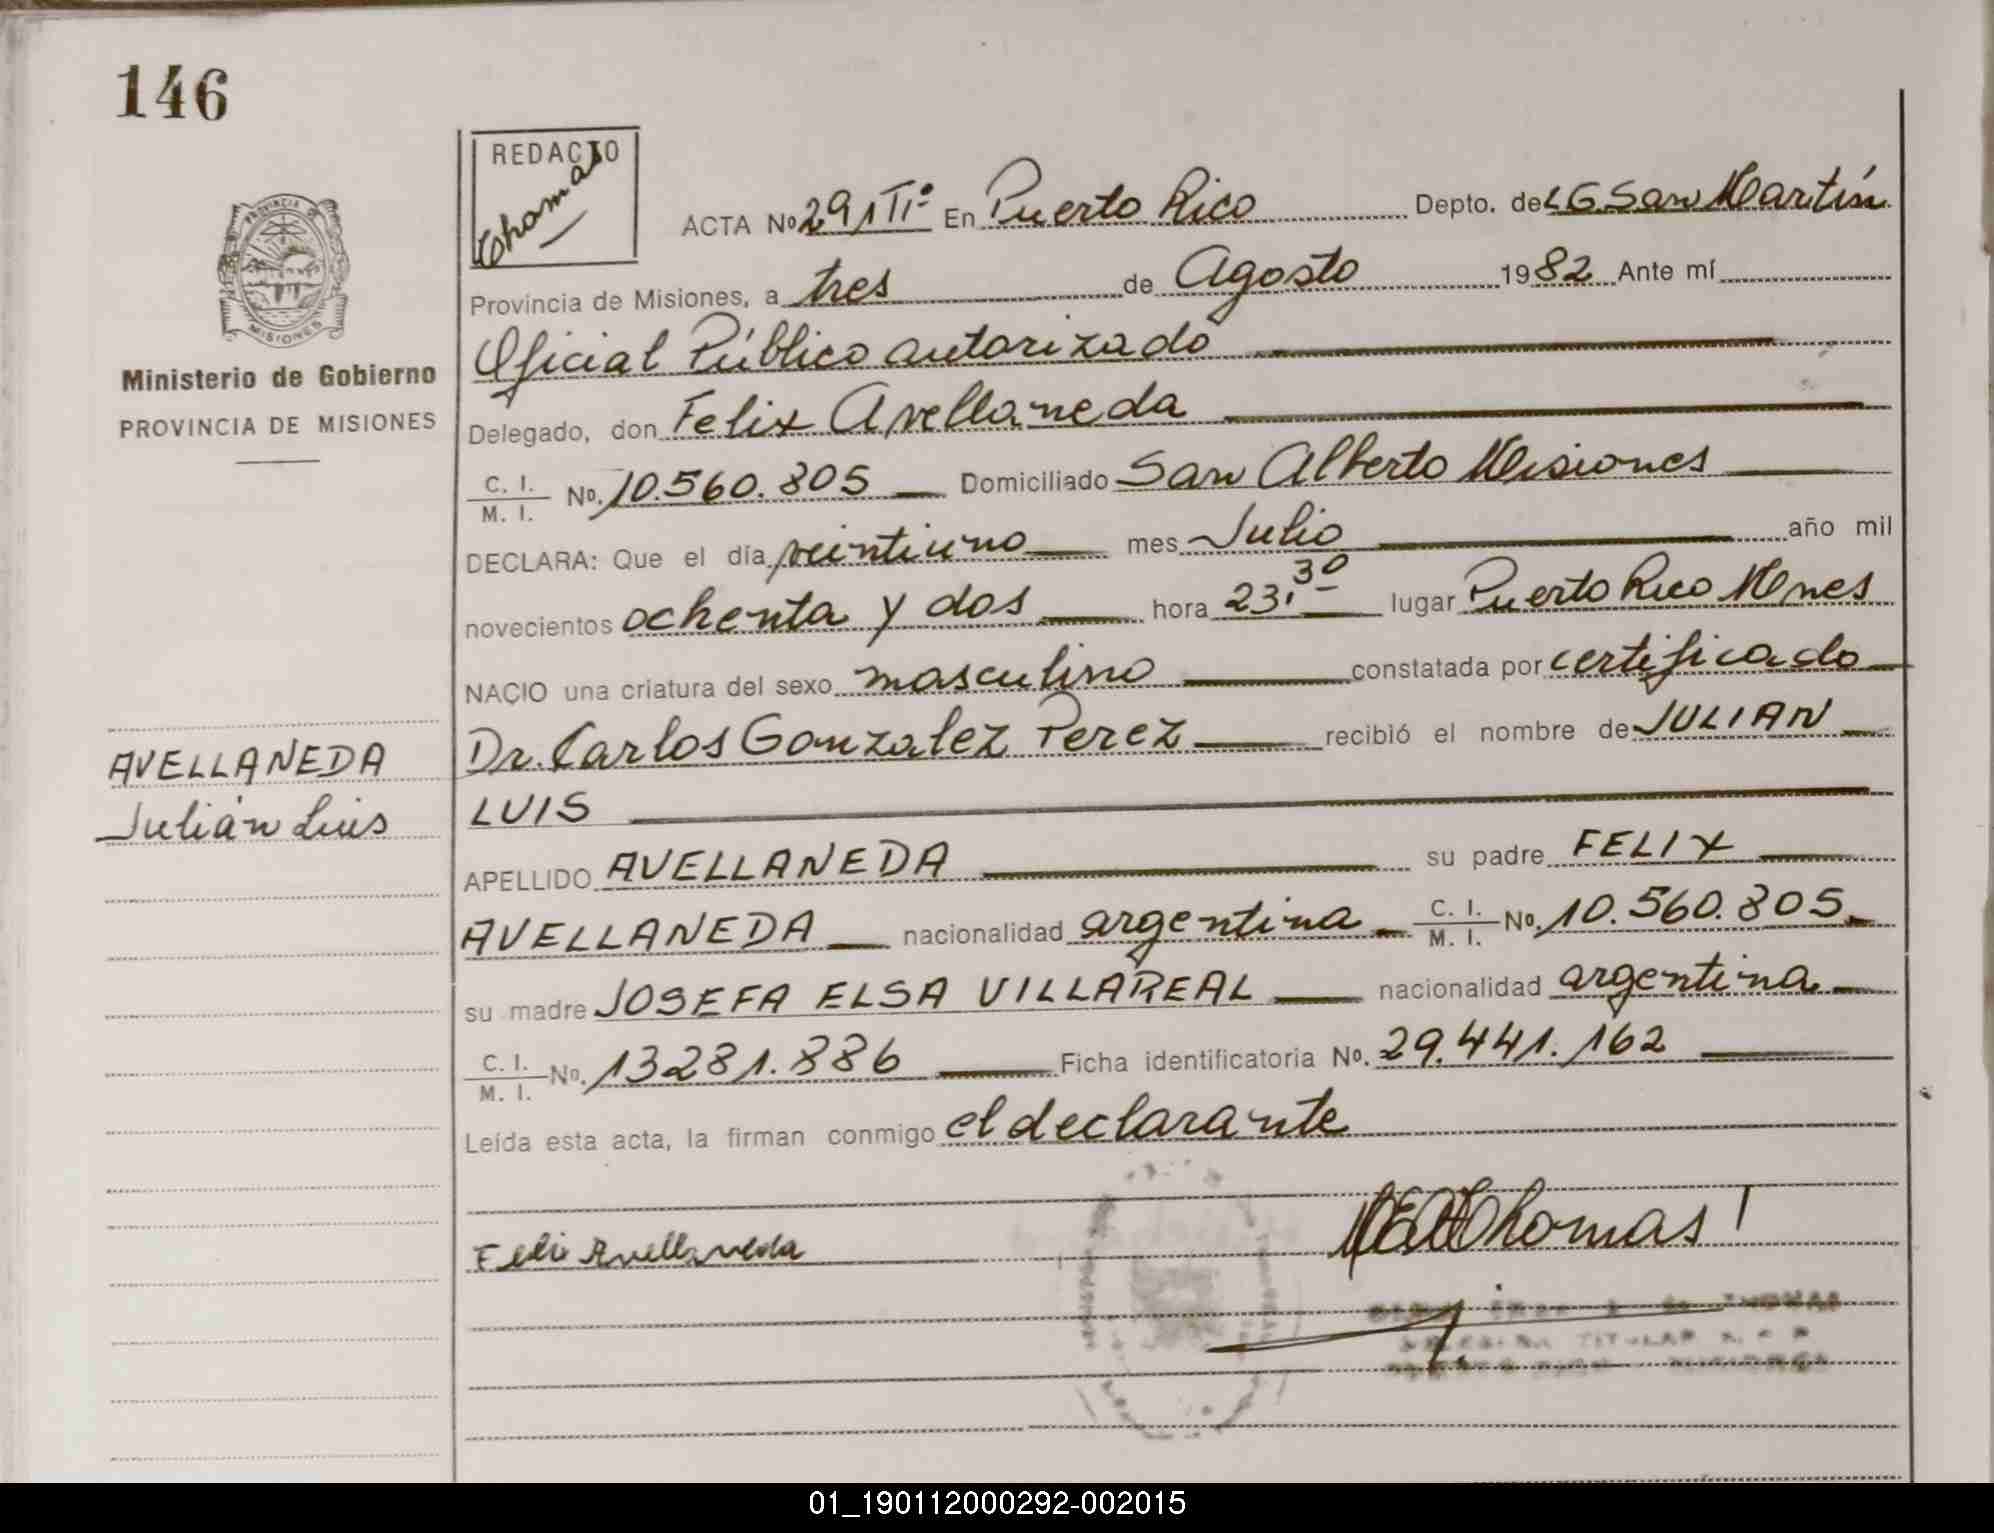 146
REDACTO
Thomas
PROVINCIA DE
MISIONES
Ministerio de Gobierno
PROVINCIA DE MISIONES
AVELLANEDA
Julián Luis
ACTA Nº 291 IIº En Puerto Rico Depto. de L G San Martín
Provincia de Misiones, a tres de Agosto 1982 Ante mí
Oficial Público autorizado
Delegado, don Felix Avellaneda
C. I. / M. I. Nº. 10.560.805 Domiciliado San Alberto Misiones
DECLARA: Que el día veintiuno mes Julio año mil
novecientos ochenta y dos hora 23.30 lugar Puerto Rico Mnes
NACIO una criatura del sexo masculino constatada por certificado
Dr. Carlos Gonzalez Perez recibió el nombre de JULIAN
LUIS
APELLIDO AVELLANEDA su padre FELIX
AVELLANEDA nacionalidad argentina C. I. / M. I. Nº. 10.560.805
su madre JOSEFA ELSA VILLAREAL nacionalidad argentina
C. I. / M. I. Nº. 13281.886 Ficha identificatoria Nº. 29.441.162
Leída esta acta, la firman conmigo el declarante
Felix Avellaneda
Thomas
01_190112000292-002015